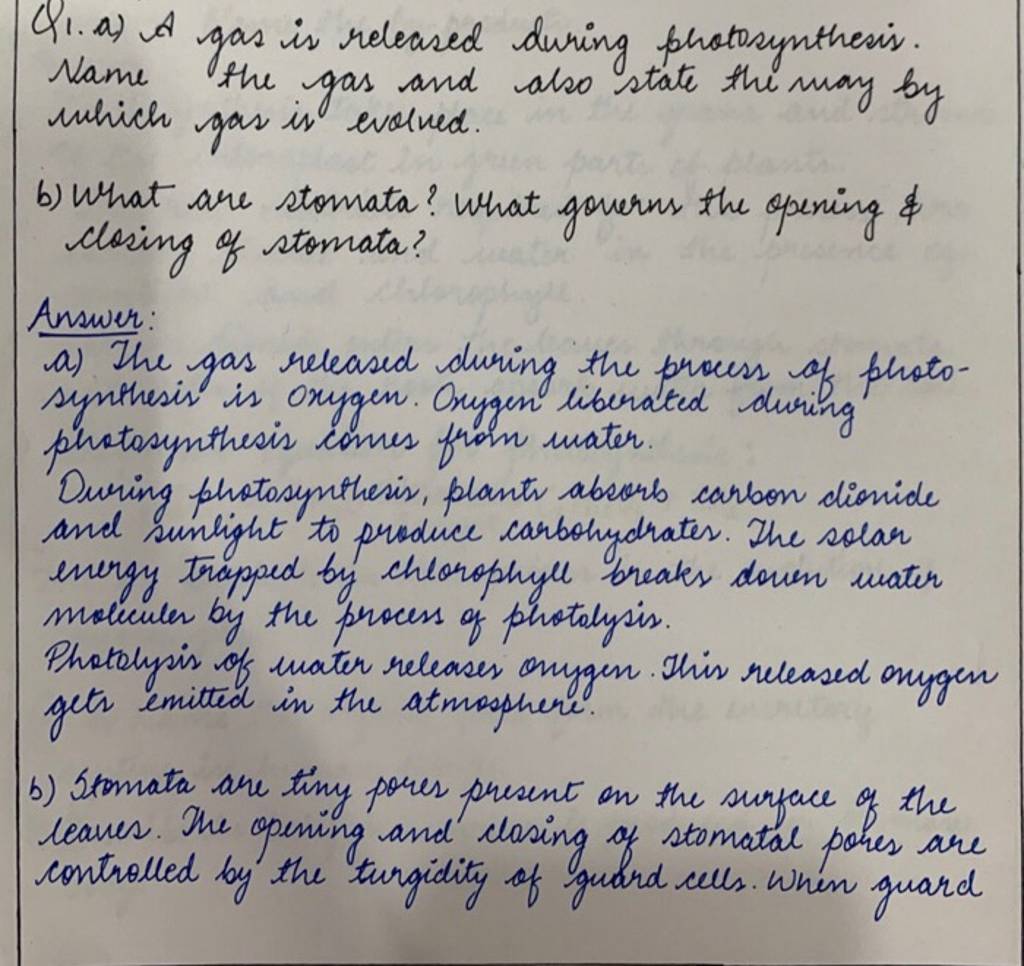 Q1. a) A gas is released during photosynthesis.
Name the gas and also state the way by
which gas is evolved.
b) What are stomata? What governs the opening &
closing of stomata?
Answer:
a) The gas released during the process of photo-
synthesis is Oxygen. Oxygen liberated during
photosynthesis comes from water.
During photosynthesis, plants absorb carbon dioxide
and sunlight to produce carbohydrates. The solar
energy trapped by chlorophyll breaks down water
molecules by the process of photolysis.
Photolysis of water releases oxygen. This released oxygen
gets emitted in the atmosphere.
b) Stomata are tiny pores present on the surface of the
leaves. The opening and closing of stomatal pores are
controlled by the turgidity of guard cells. When guard